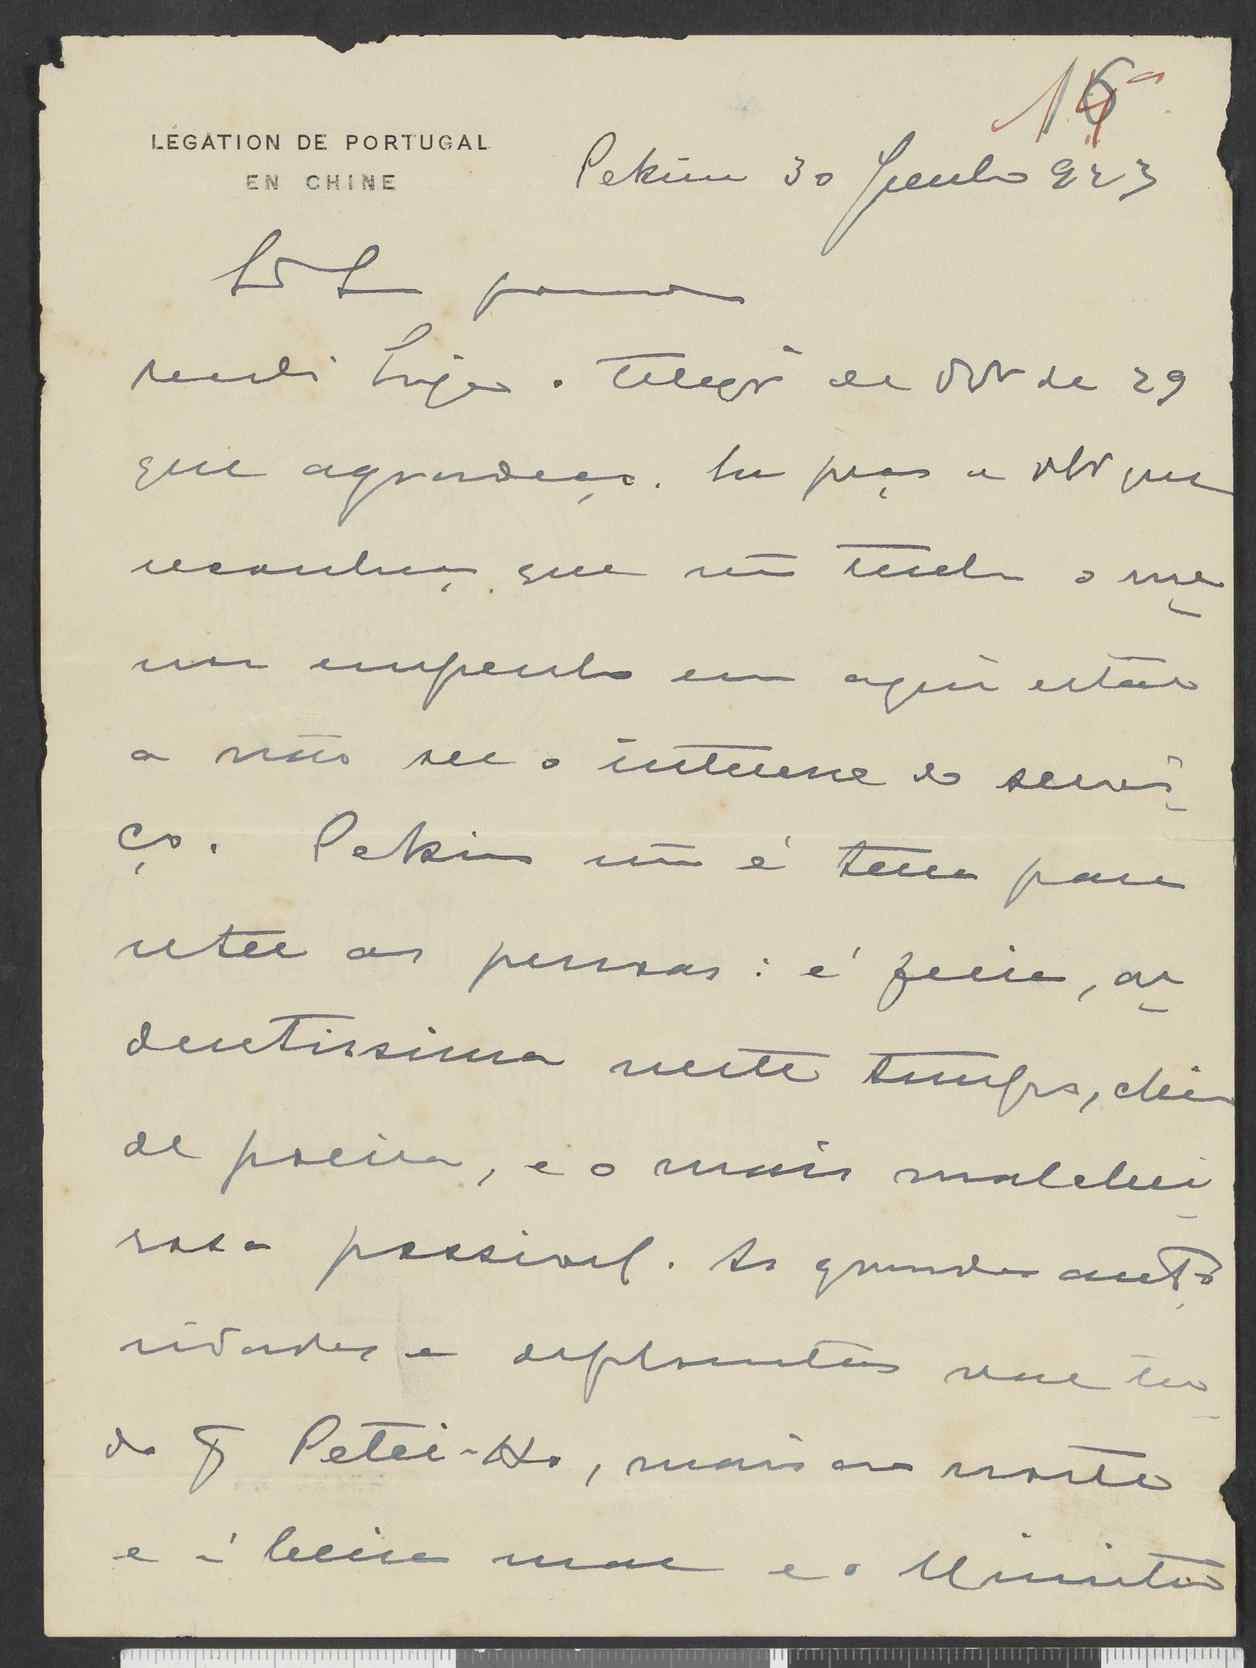 LÉGATION DE PORTUGAL
EN CHINE
Pekim 30 Junho 923
Recebi hoje o telegr de de 29
que agradeço. Eu peço a que
reconheça que não tenho o me
nor empenho em aqui estar
a não ser o interesse do servi
ço. Pekim não é terra para
reter as pessoas: é feia, ar
dentissima neste tempo, cheia
de poeira, e o mais malchei
rosa possivel. As grandes auto
ridades e diplomatas vae tu
do Petei-Ho, mais ao norte
e á beira mar e o Ministro